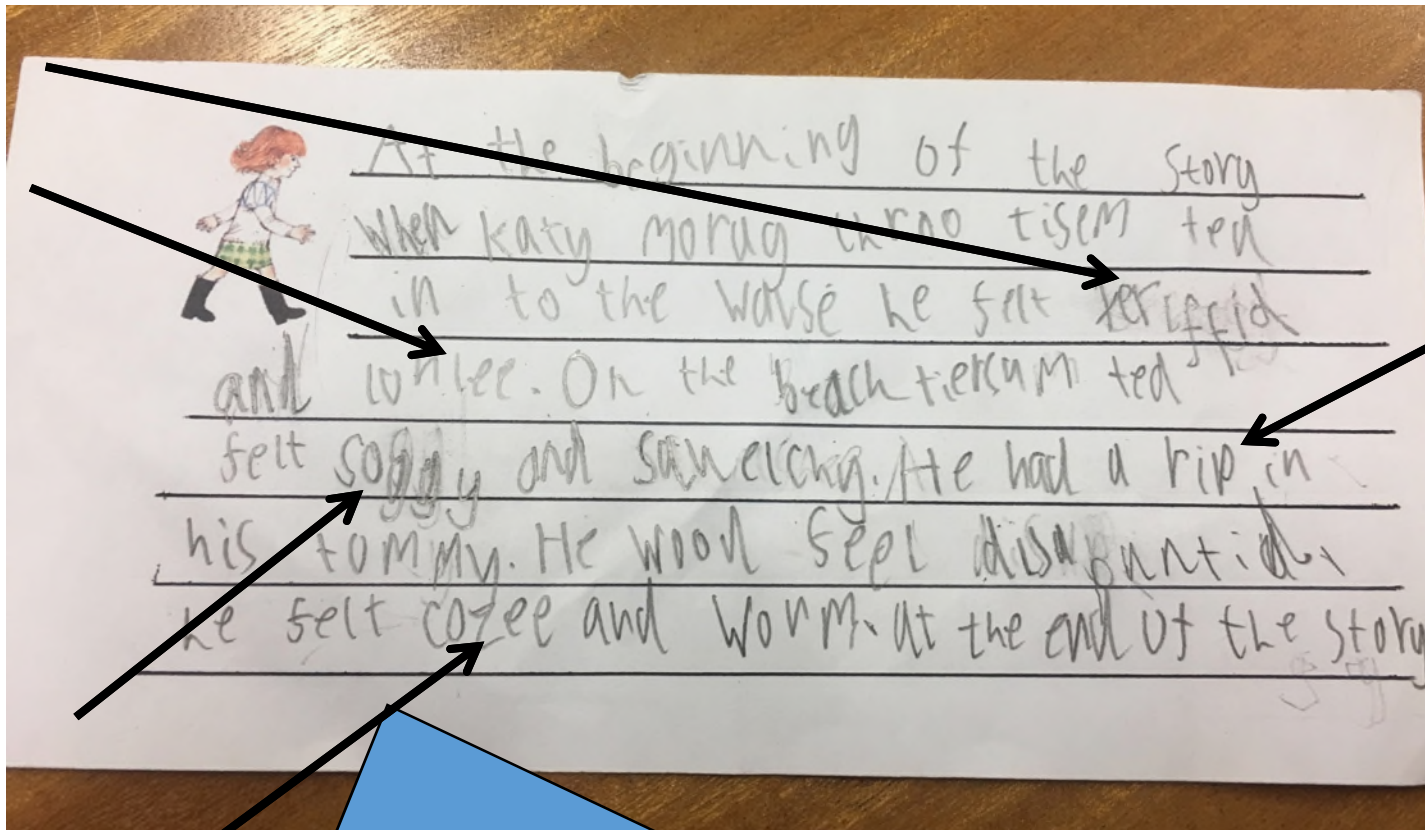 At the beginning of the Story
When katy morag turno tisem ted
in to the Wavse he felt teriffid
and lonlee. On the beach tiersum ted
felt soggy and sqwelchy. He had a rip in
his tommy. He wood feel disapuntid.
he felt cozee and Worm. at the end of the story